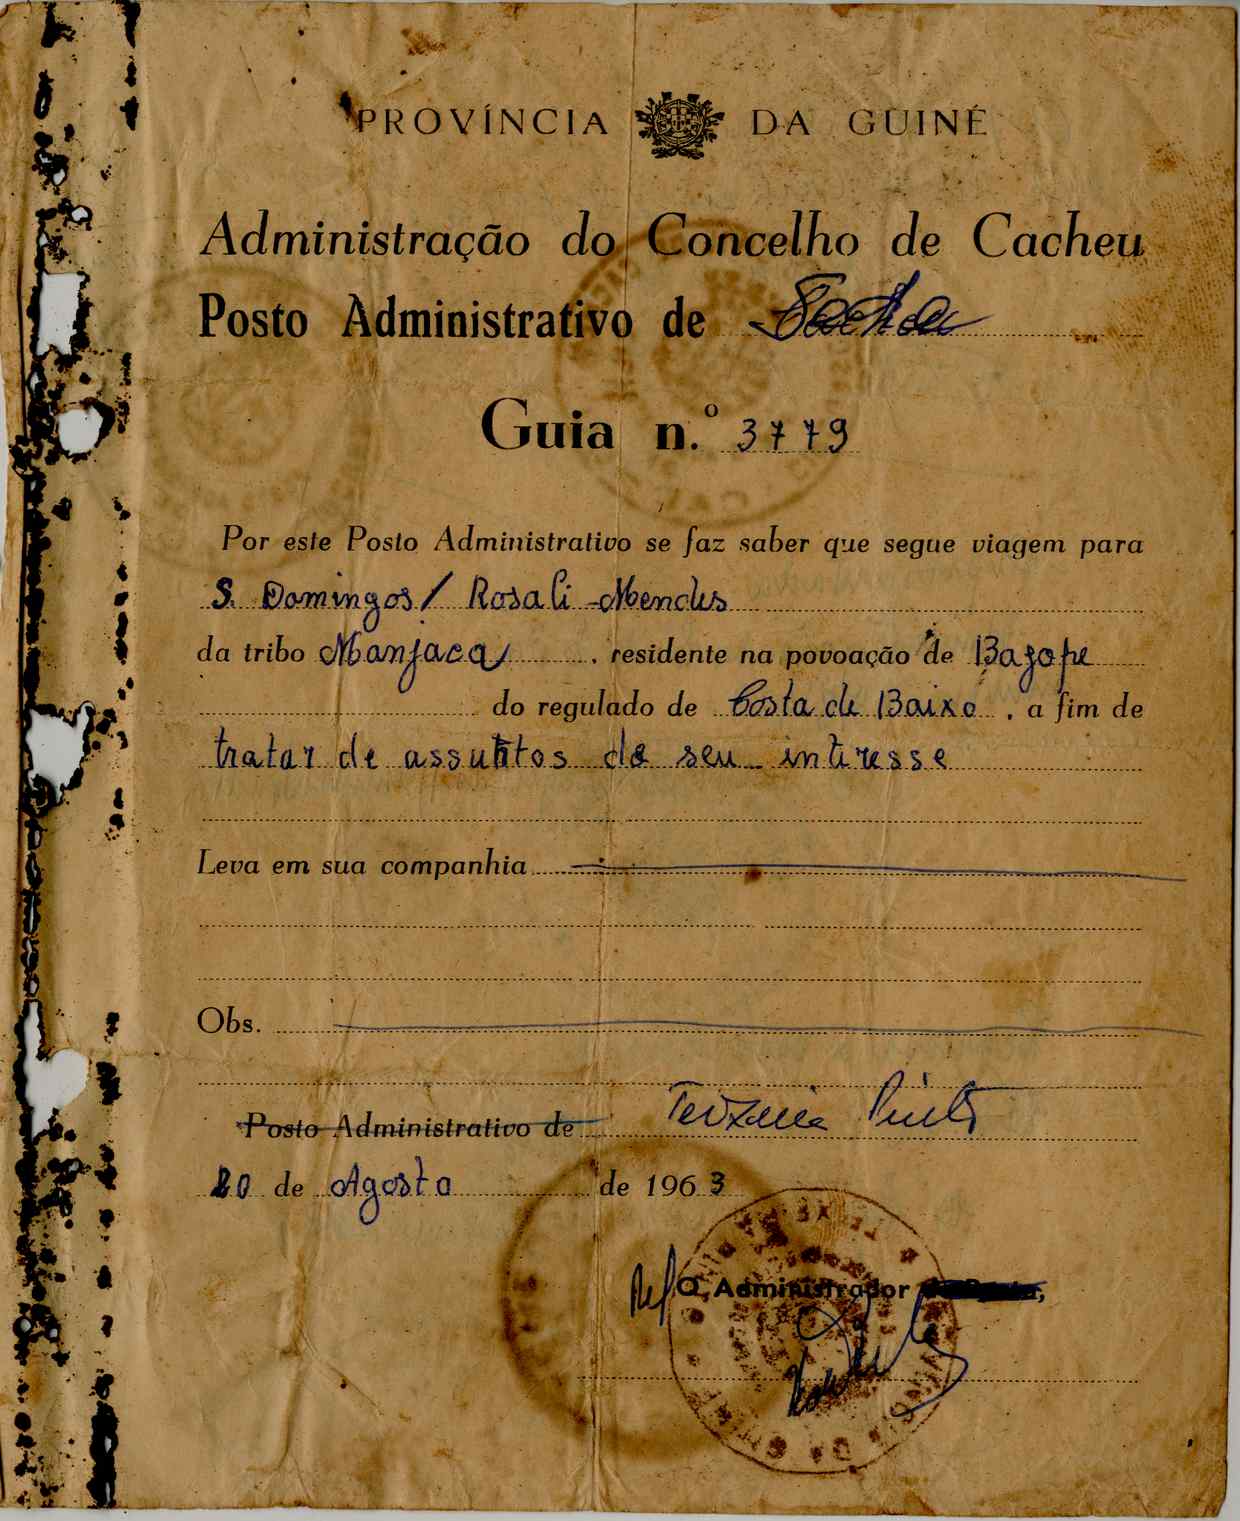 PROVÍNCIA DA GUINÉ
Administração do Concelho de Cacheu
Posto Administrativo de
Guia n.º 3779
Por este Posto Administrativo se faz saber que segue viagem para
S. Domingos / Rosali Mendes
da tribo Manjaca, residente na povoação de Bagope
do regulado de Costa de Baixo, a fim de
tratar de assuntos de seu interesse
Leva em sua companhia
Obs.
Posto Administrativo de Teixeira Pinto
20 de Agosto de 1963
O Administrador